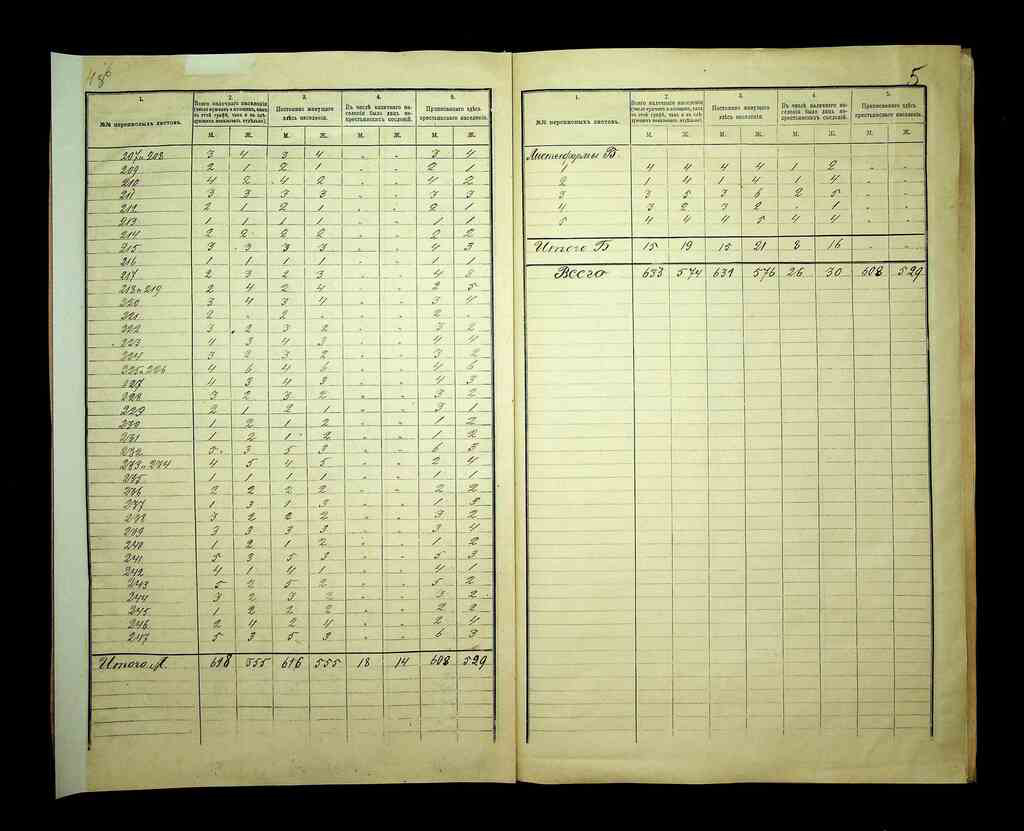 486
1. 2. 3. 4. 5.
№№ переписныхъ листовъ.
Всего наличнаго населенія
Постоянно живущаго здѣсь населенія.
Въ числѣ наличнаго населенія было лицъ некрестьянскихъ сословій.
Приписаннаго здѣсь крестьянскаго населенія.
М. Ж. М. Ж. М. Ж. М. Ж.
207 и 208 3 4 3 4 - - 3 4
209 2 1 2 1 - - 2 1
210 4 2 4 2 - - 4 2
211 3 3 3 3 - - 3 3
212 2 1 2 1 - - 2 1
213 1 1 1 1 - - 1 1
214 2 2 2 2 - - 2 2
215 3 3 3 3 - - 4 3
216 1 1 1 1 - - 1 1
217 2 3 2 3 - - 4
218 и 219 2 4 2 4 - - 2 5
220 3 4 3 4 - - 3 4
221 2 - 2 - - - 2 -
222 3 2 3 2 - - 3 2
223 4 3 4 3 - - 4 4
224 3 2 3 2 - - 3 2
225 и 226 4 6 4 6 - - 4 6
227 4 3 4 3 - - 4 3
228 3 2 3 2 - - 3 2
229 2 1 2 1 - - 3 1
230 1 2 1 2 - - 1 2
231 1 2 1 2 - - 1 2
232 5 3 5 3 - - 6 3
233 и 234 4 5 4 5 - - 2 4
235 1 1 1 1 - - 1 1
236 2 2 2 2 - - 2 2
237 1 3 1 3 - - 1 3
238 3 2 2 2 - - 3 2
239 3 3 3 3 - - 3 4
240 1 2 1 2 - - 1 2
241 5 3 5 3 - - 5 3
242 4 1 4 1 - - 4 1
243 5 2 5 2 - - 5 2
244 3 2 3 2 - - 3 2
245 1 2 2 2 - - 2 2
246 2 4 2 4 - - 2 4
247 5 3 5 3 - - 6 3
Итого А. 618 555 616 555 18 14 608 529
5
1. 2. 3. 4. 5.
№№ переписныхъ листовъ.
Всего наличнаго населенія
Постоянно живущаго здѣсь населенія.
Въ числѣ наличнаго населенія было лицъ некрестьянскихъ сословій.
Приписаннаго здѣсь крестьянскаго населенія.
М. Ж. М. Ж. М. Ж. М. Ж.
Листы формы Б.
1 4 4 4 4 1 2 - -
2 1 4 1 4 1 4 - -
3 3 5 3 6 2 5 - -
4 3 2 3 2 - 1 - -
5 4 4 4 5 4 4 - -
Итого Б 15 19 15 21 8 16 - -
Всего 633 574 631 576 26 30 608 529